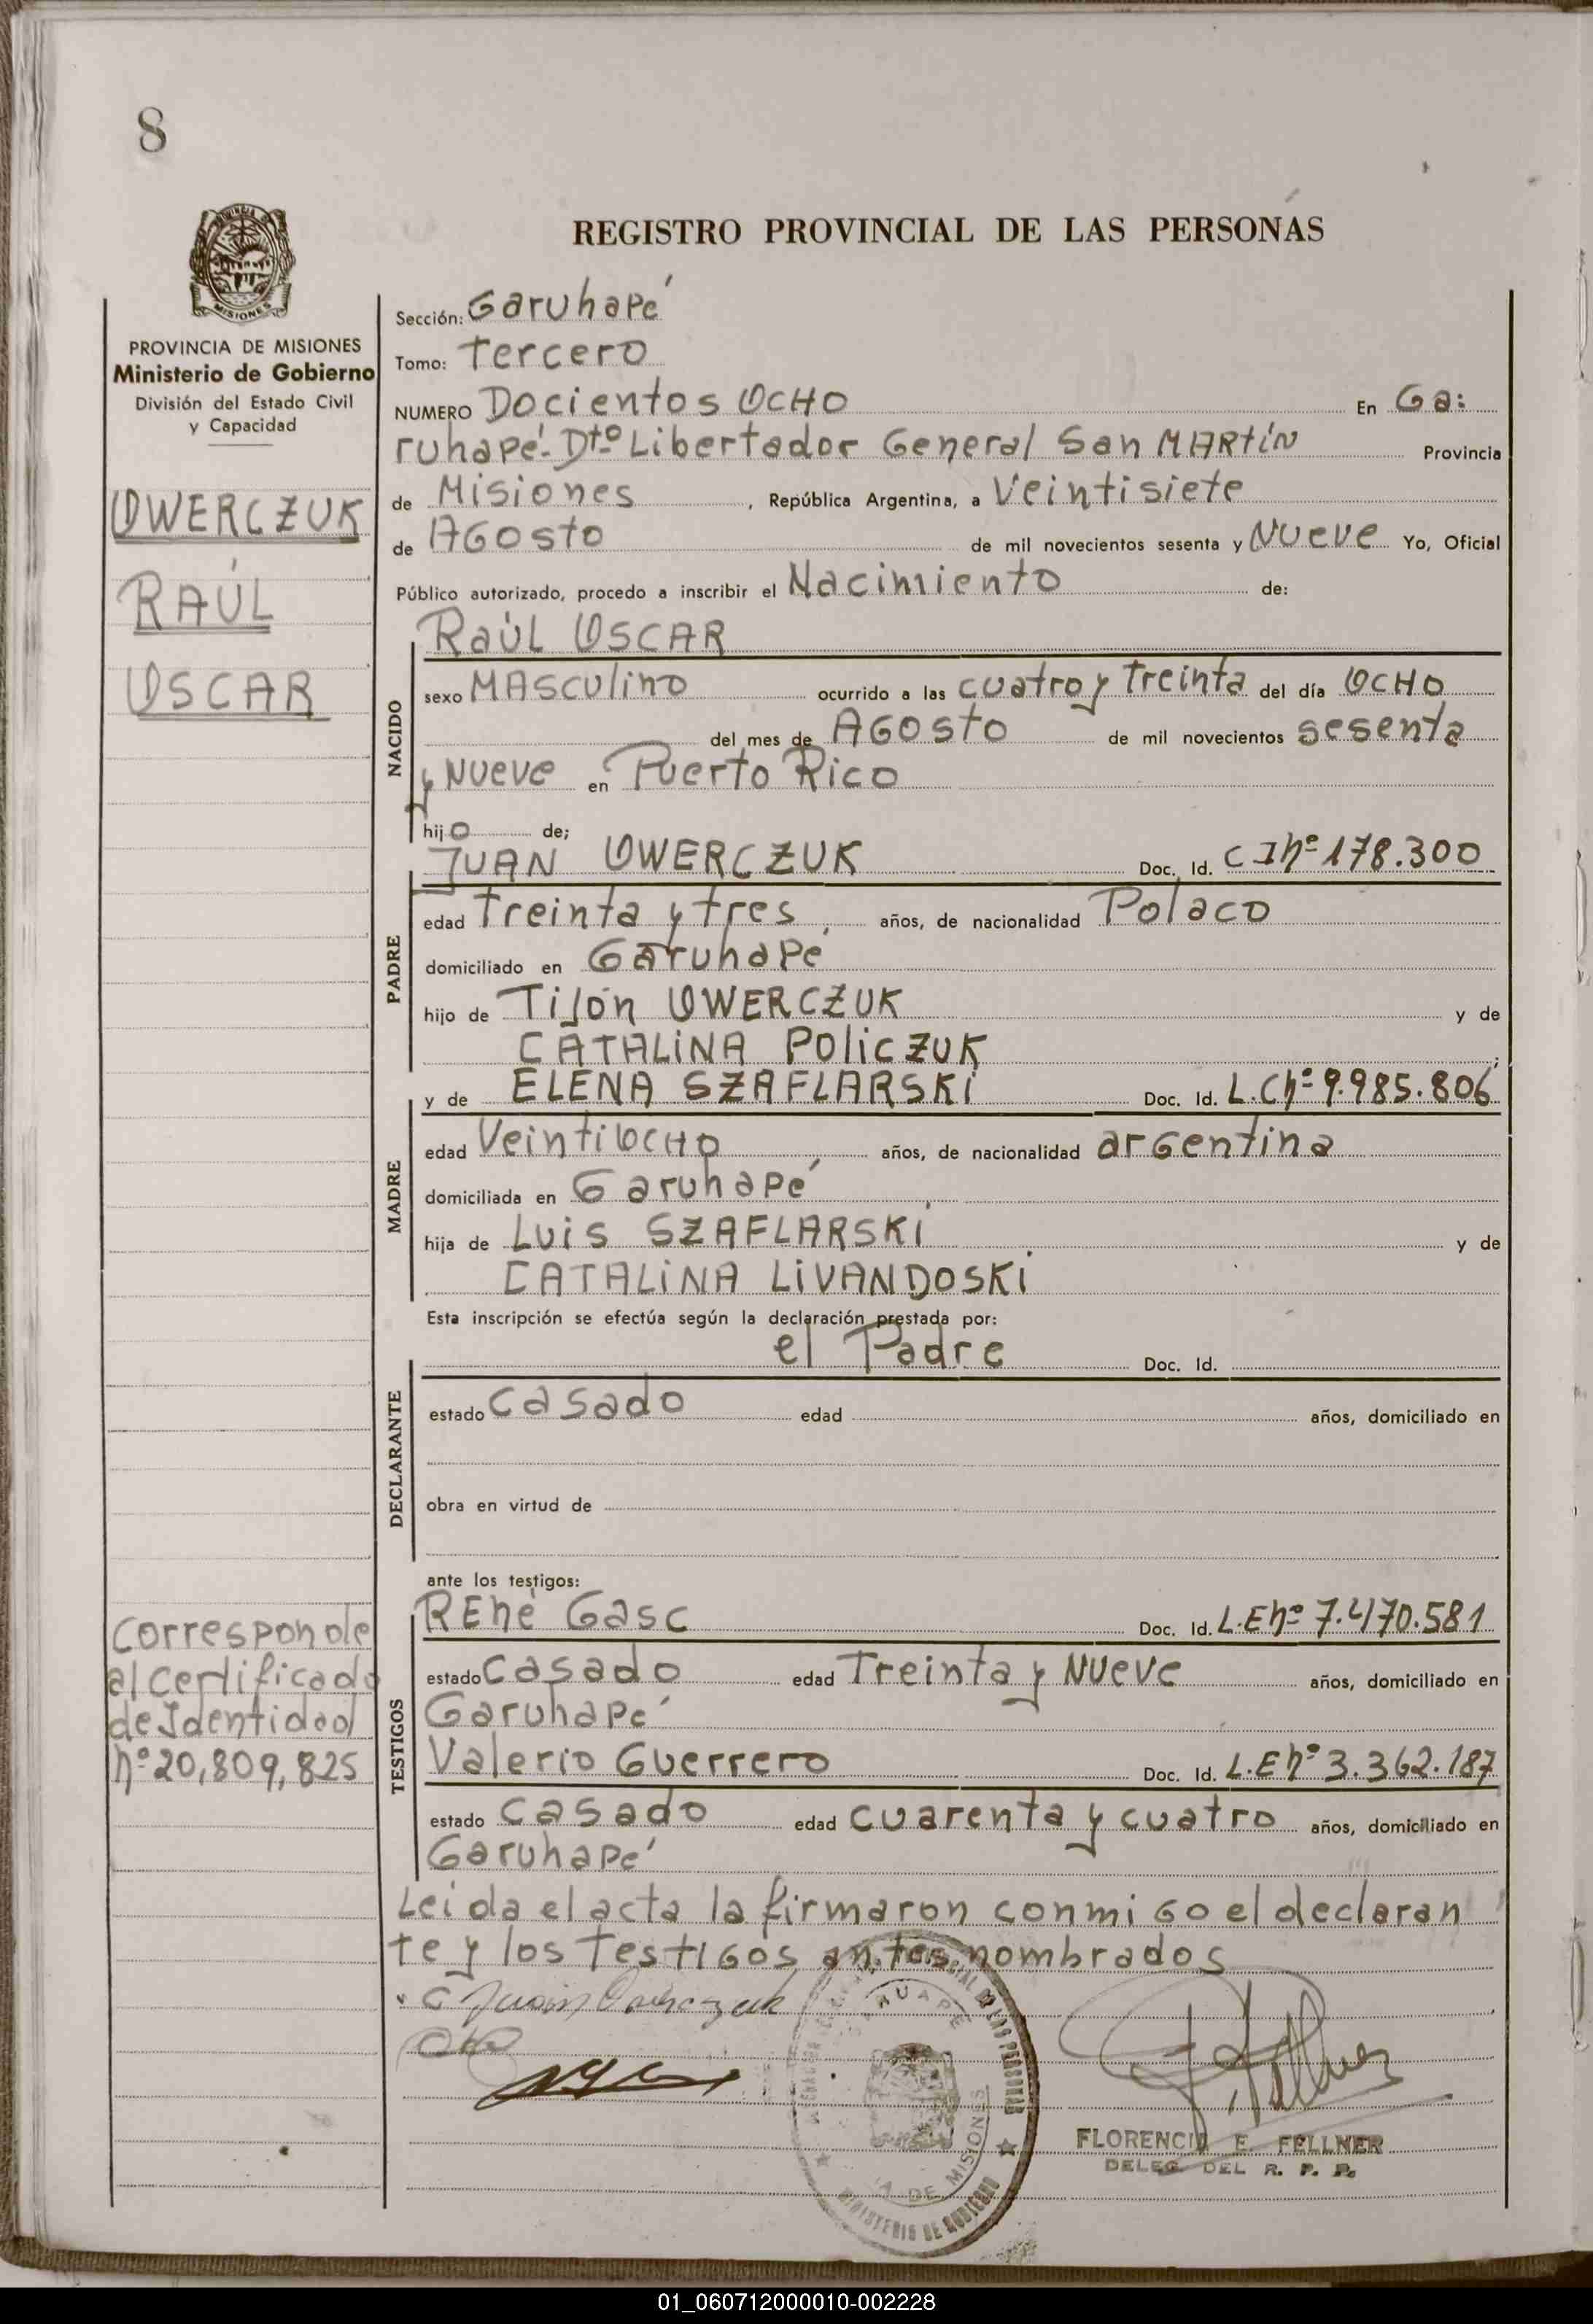 8
REGISTRO PROVINCIAL DE LAS PERSONAS
MISIONES
PROVINCIA DE MISIONES
Ministerio de Gobierno
División del Estado Civil
y Capacidad
OWERCZUK
RAÚL
OSCAR
Corresponde
al Certificado
de Identidad
nº 20,809,825
Sección: Garuhapé
Tomo: Tercero
NUMERO Docientos OCHO En Ga:
ruhapé.- Dtº Libertador General San MARtíN Provincia
de Misiones, República Argentina, a Veintisiete
de AGosto de mil novecientos sesenta y Nueve Yo, Oficial
Público autorizado, procedo a inscribir el Nacimiento de:
RaúL OSCAR
NACIDO
sexo MASculino ocurrido a las cuatro y Treinta del día OCHO
del mes de AGosto de mil novecientos sesenta
y Nueve en Puerto Rico
hijo de;
JUAN OWERCZUK Doc. Id. C I nº 178.300
PADRE
edad Treinta y tres años, de nacionalidad Polaco
domiciliado en Garuhapé
hijo de Tijón OWERCZUK y de
CATALiNA POLiCZUK;
y de ELENA SZAFLARSKi Doc. Id. L.C nº 9.985.806
MADRE
edad VeintiOCHO años, de nacionalidad arGentina
domiciliada en Garuhapé
hija de Luis SZAFLARSKi y de
CATALiNA LiVANDOSKi
Esta inscripción se efectúa según la declaración prestada por:
el Padre Doc. Id.
DECLARANTE
estado casado edad años, domiciliado en
obra en virtud de
ante los testigos:
TESTIGOS
RENé Gasc Doc. Id. L.E nº 7.470.581
estado casado edad Treinta y Nueve años, domiciliado en
Garuhapé
Valerio Guerrero Doc. Id. L.E nº 3.362.187
estado casado edad cuarenta y cuatro años, domiciliado en
Garuhapé
Leida el acta la firmaron conmiGo el declaran
te y los TestiGos antes nombrados
Juan Owerczuk
FLORENCIO E. FELLNER
DELEG. DEL R. P. P.
MINISTERIO DE GOBIERNO
01_060712000010-002228